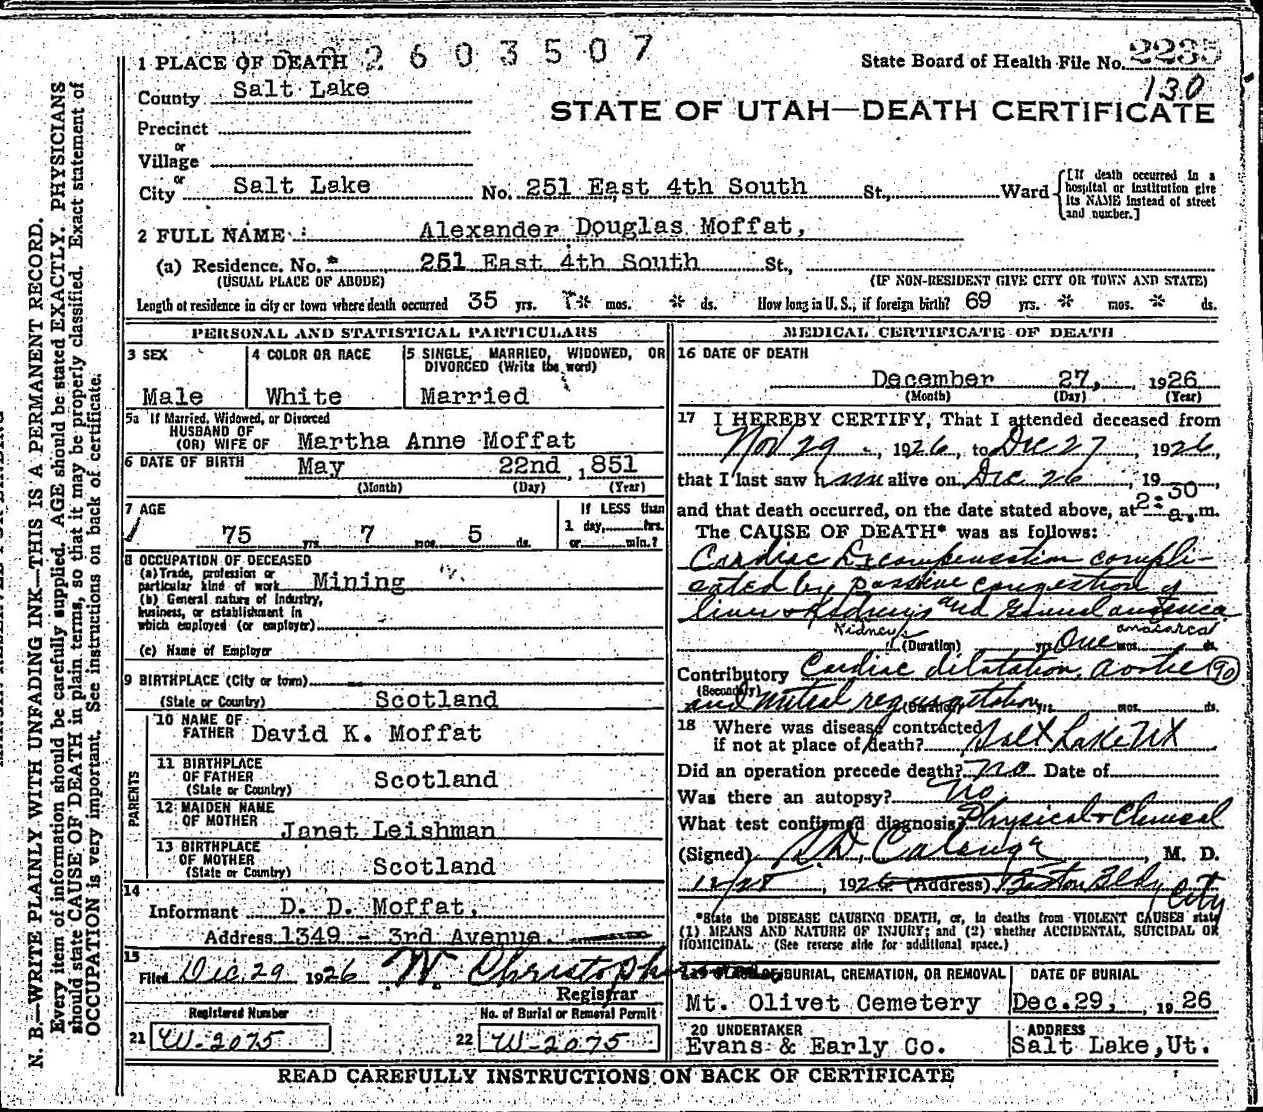 2603507
1 PLACE OF DEATH
State Board of Health File No. 2235
130
County Salt Lake
STATE OF UTAH—DEATH CERTIFICATE
Precinct
or
Village
or
City Salt Lake No. 251 East 4th South St., Ward
[If death occurred in a
hospital or institution give
its NAME instead of street
and number.]
2 FULL NAME Alexander Douglas Moffat,
(a) Residence. No. 251 East 4th South St.,
(USUAL PLACE OF ABODE) (IF NON-RESIDENT GIVE CITY OR TOWN AND STATE)
Length of residence in city or town where death occurred 35 yrs. mos. ds. How long in U. S., if foreign birth? 69 yrs. mos. ds.
PERSONAL AND STATISTICAL PARTICULARS
3 SEX
Male
4 COLOR OR RACE
White
5 SINGLE, MARRIED, WIDOWED, OR
DIVORCED (Write the word)
Married
5a If Married, Widowed, or Divorced
HUSBAND OF
(OR) WIFE OF Martha Anne Moffat
6 DATE OF BIRTH May 22nd, 1851
(Month) (Day) (Year)
7 AGE
75 yrs. 7 mos. 5 ds.
If LESS than
1 day, hrs.
or min.?
8 OCCUPATION OF DECEASED
(a) Trade, profession or
particular kind of work Mining
(b) General nature of industry,
business, or establishment in
which employed (or employer)
(c) Name of Employer
9 BIRTHPLACE (City or town)
(State or Country) Scotland
PARENTS
10 NAME OF
FATHER David K. Moffat
11 BIRTHPLACE
OF FATHER
(State or Country) Scotland
12 MAIDEN NAME
OF MOTHER Janet Leishman
13 BIRTHPLACE
OF MOTHER
(State or Country) Scotland
14
Informant D. D. Moffat,
Address 1349 - 3rd Avenue.
15
Filed Dec. 29 1926 W. Christopherson
Registrar
Registered Number
21 W-2075
No. of Burial or Removal Permit
22 W-2075
MEDICAL CERTIFICATE OF DEATH
16 DATE OF DEATH
December 27, 1926
(Month) (Day) (Year)
17 I HEREBY CERTIFY, That I attended deceased from
Nov 29, 1926, to Dec 27, 1926,
that I last saw him alive on Dec 26, 19
and that death occurred, on the date stated above, at 2:30 a.m.
The CAUSE OF DEATH* was as follows:
Cardiac Decompensation compli-
cated by passive congestion of
liver & Kidneys and General anasarca
Kidneys anasarca
(Duration) yrs. One mos. ds.
Contributory Cardiac dilatation, aortic 90
(Secondary) and mitral regurgitation
(Duration) yrs. mos. ds.
18 Where was disease contracted
if not at place of death? Salt Lake Ut
Did an operation precede death? no Date of
Was there an autopsy? No
What test confirmed diagnosis? Physical & Clinical
(Signed) , M. D.
12/28, 1926 (Address) Boston Bldg City
*State the DISEASE CAUSING DEATH, or, in deaths from VIOLENT CAUSES state
(1) MEANS AND NATURE OF INJURY; and (2) whether ACCIDENTAL, SUICIDAL OR
HOMICIDAL. (See reverse side for additional space.)
19 OF BURIAL, CREMATION, OR REMOVAL
Mt. Olivet Cemetery
DATE OF BURIAL
Dec. 29, 1926
20 UNDERTAKER
Evans & Early Co.
ADDRESS
Salt Lake, Ut.
READ CAREFULLY INSTRUCTIONS ON BACK OF CERTIFICATE
N. B.—WRITE PLAINLY WITH UNFADING INK—THIS IS A PERMANENT RECORD.
Every item of information should be carefully supplied. AGE should be stated EXACTLY. PHYSICIANS
should state CAUSE OF DEATH in plain terms, so that it may be properly classified. Exact statement of
OCCUPATION is very important. See instructions on back of certificate.